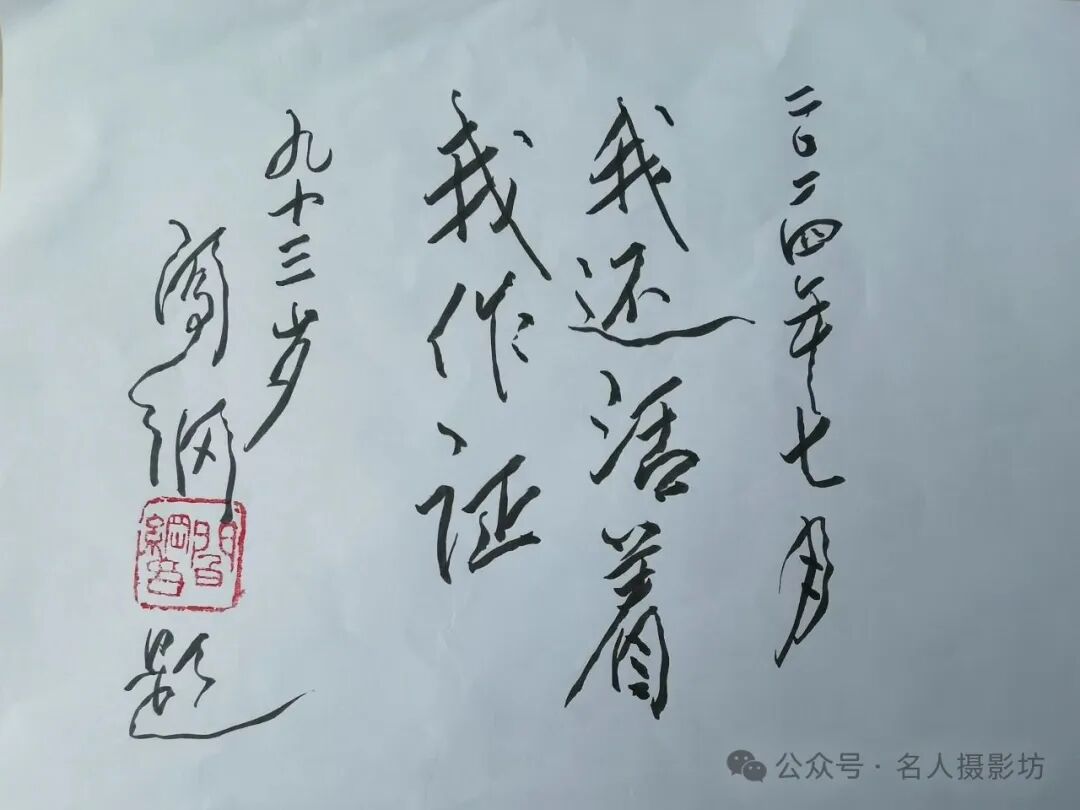 二〇二四年七月
我还活着
我作证
九十三岁
阎纲
閻綱
题
公众号·名人摄影坊